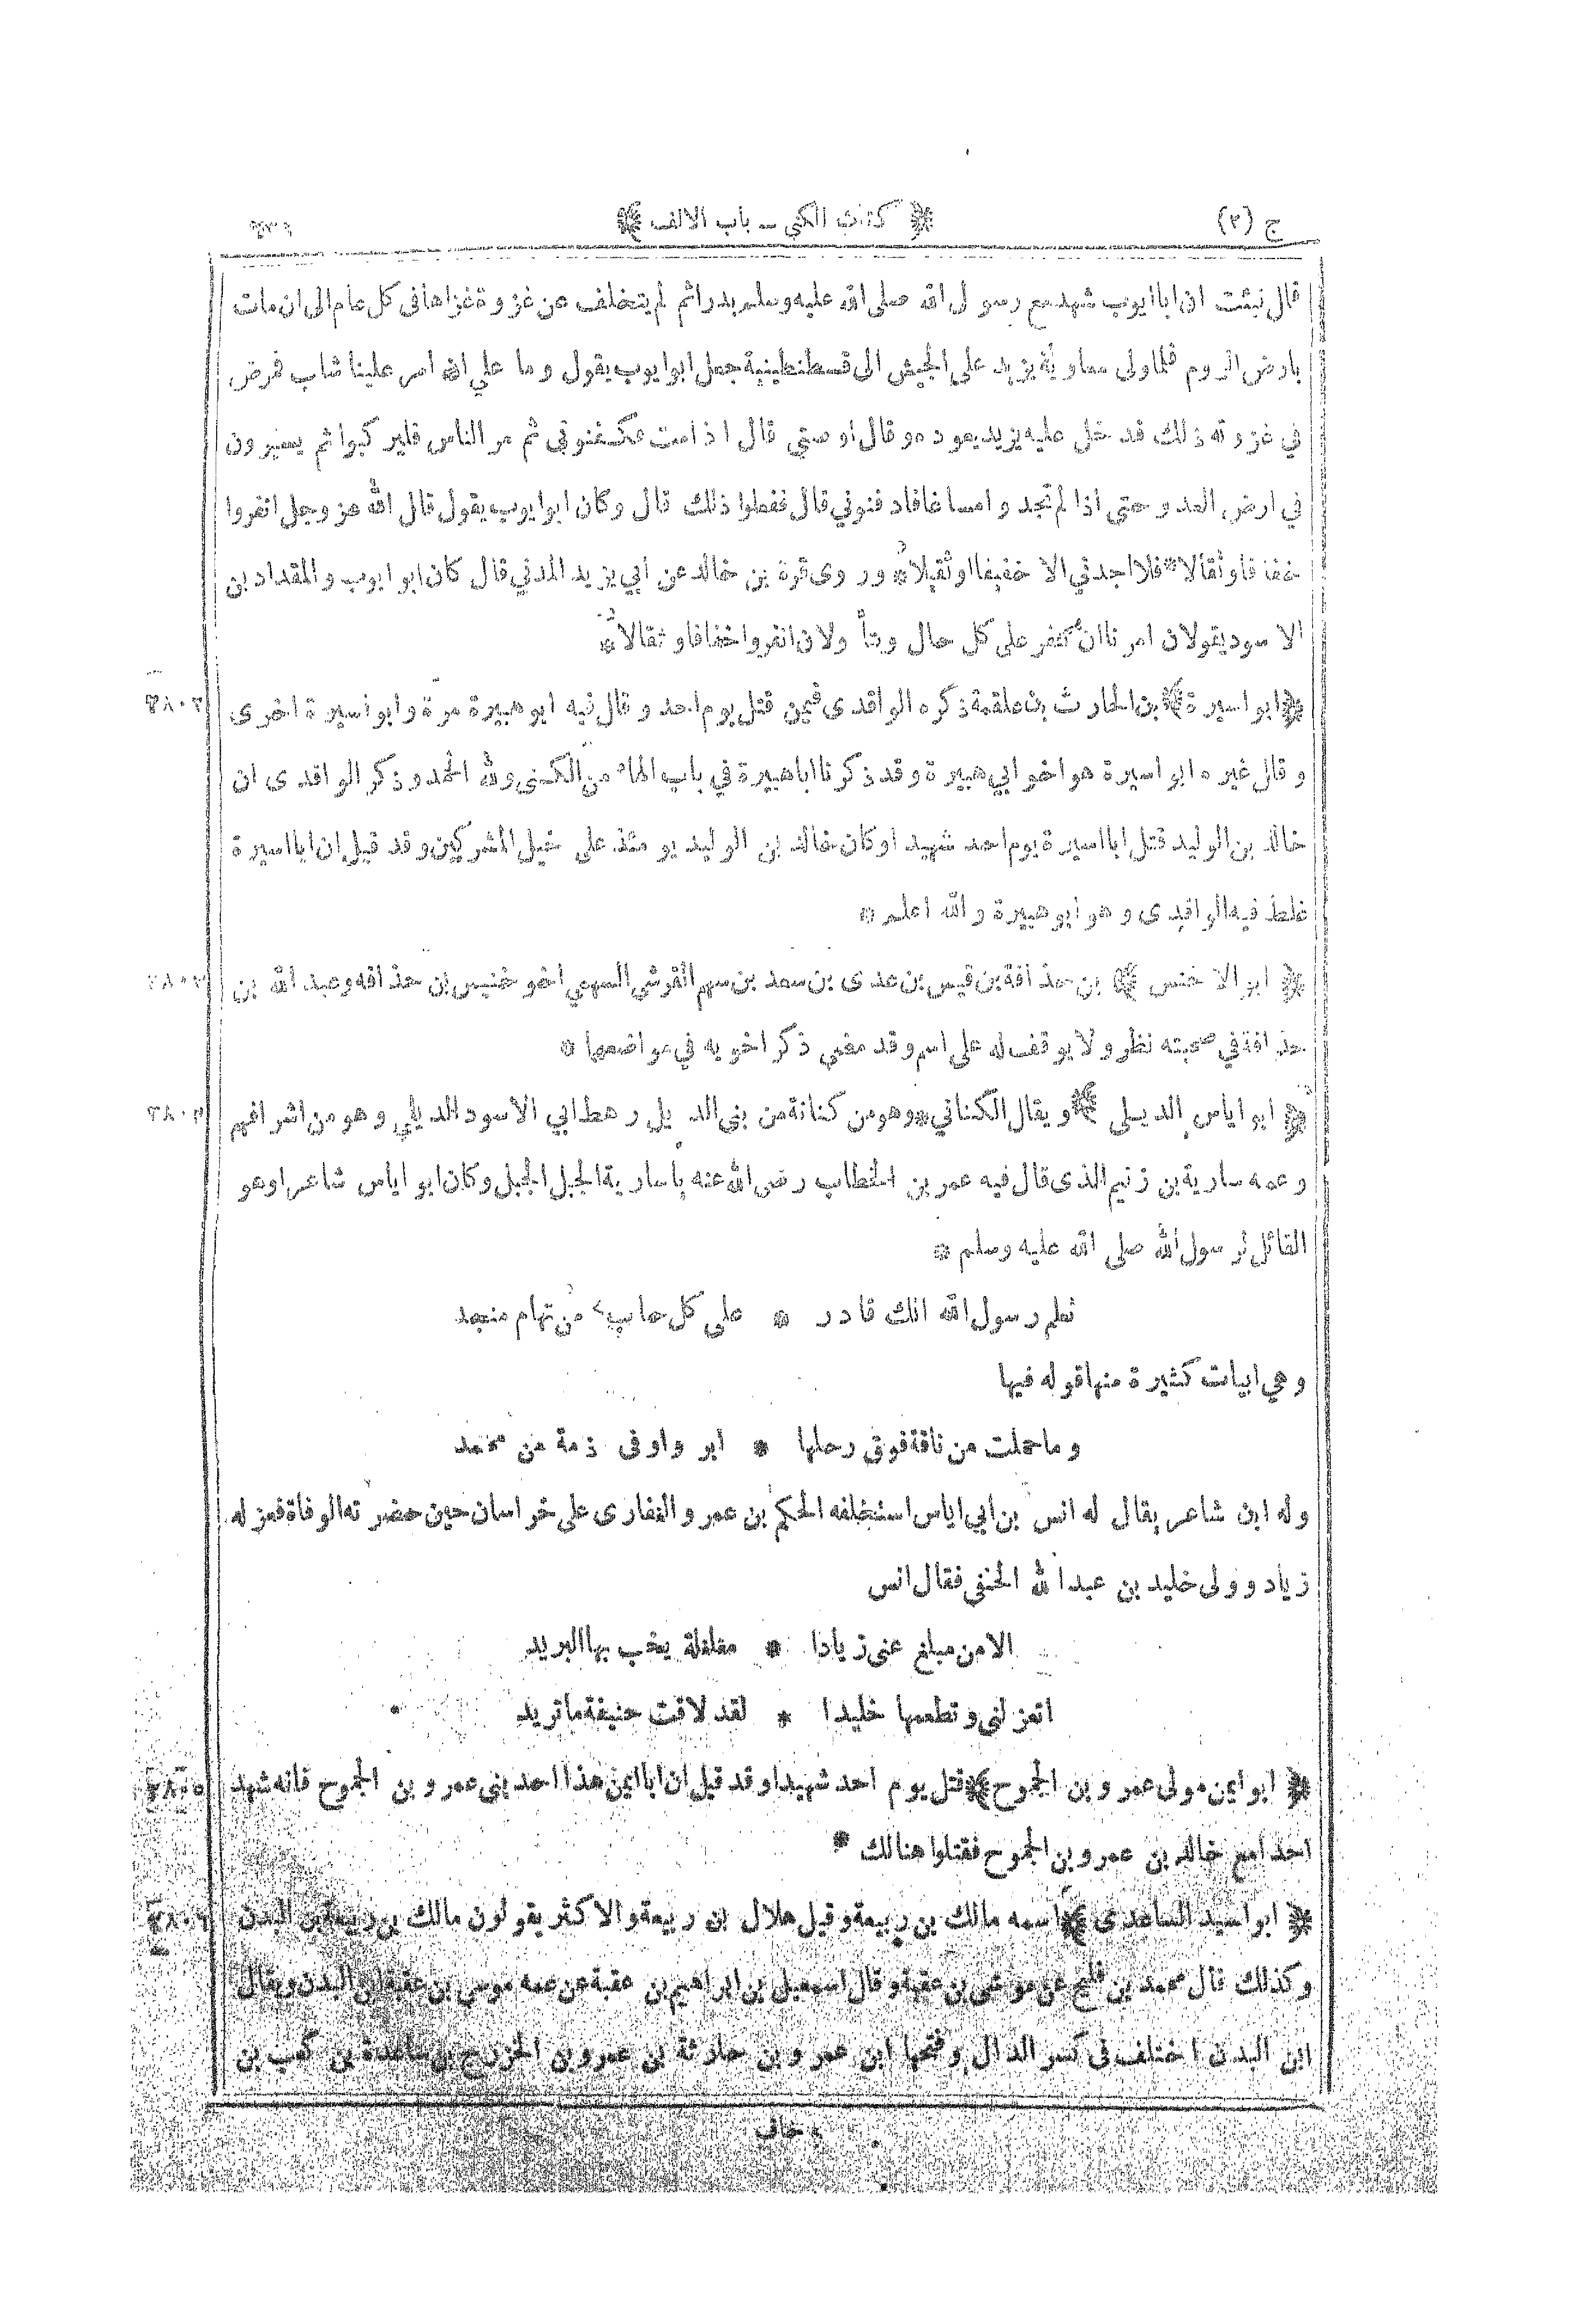 ج (٢) ﴿ كتاب الكنى ــ باب الالف ﴾
قال نبئت ان ابا ايوب شهد مع رسول الله صلى الله عليه وسلم بدرا ثم لم يتخلف عن غزوة غزاها فى كل عام الى ان مات
بارض الروم فلما ولى معاوية يزيد على الجيش الى قسطنطينية جعل ابوايوب يقول وما علي ان امر علينا شاب فمرض
في غزوته ذلك فدخل عليه يزيد يعوده وقال اوصني قال اذا مت فكفنوني ثم مر الناس فليركبوا ثم يسيرون
في ارض العدو حتى اذا لم تجد وامساغا فادفنوني قال ففعلوا ذلك قال وكان ابوايوب يقول قال الله عز وجل انفروا
خفافا وثقالا * فلا اجدني الا خفيفا او ثقيلا * وروى قرة بن خالد عن ابي يزيد المدني قال كان ابو ايوب والمقداد بن
الاسود يقولان امرنا ان ننفر على كل حال ويتأولان انفروا خفافا وثقالا *
﴿ ابو اسيرة ﴾ بن الحارث بن علقمة ذكره الواقدى فيمن قتل يوم احد وقال فيه ابو هبيرة مرة وابو اسيرة اخرى ٢٨٠٢
وقال غيره ابو اسيرة هو اخو ابي هبيرة وقد ذكرنا ابا هبيرة في باب الهاء من الكنى ولله الحمد وذكر الواقدى ان
خالد بن الوليد قتل ابا اسيرة يوم احد شهيدا وكان خالد بن الوليد يومئذ على خيل المشركين وقد قيل ان ابا اسيرة
غلط فيه الواقدى وهو ابو هبيرة والله اعلم *
﴿ ابو الاخنس ﴾ بن حذافة بن قيس بن عدى بن سعد بن سهم القرشي السهمي اخو خنيس بن حذافه وعبد الله بن ٢٨٠٣
حذافة في صحبته نظر ولا يوقف له على اسم وقد مضى ذكر اخويه في مواضعها *
﴿ ابو اياس الديلى ﴾ ويقال الكناني * وهو من كنانة من بنى الديل رهط ابي الاسود الديلي وهو من اشرافهم ٢٨٠٤
وعمه سارية بن زنيم الذى قال فيه عمر بن الخطاب رضى الله عنه يا سارية الجبل الجبل وكان ابو اياس شاعرا وهو
القائل لرسول الله صلى الله عليه وسلم *
تعلم رسول الله انك قادر * على كل حاب من تهام منجد
وهي ابيات كثيرة منها قوله فيها
وما حملت من ناقة فوق رحلها * ابر واوفى ذمة من محمد
وله ابن شاعر يقال له انس بن ابي اياس استخلفه الحكم بن عمرو الغفارى على خراسان حين حضرته الوفاة فعزله
زياد وولى خليد بن عبد الله الحنفى فقال انس
الا من مبلغ عنى زيادا * مغلغلة يخب بها البريد
اتعزلنى وتطعمها خليدا * لقد لاقت حنيفة ما تريد
﴿ ابو ايمن مولى عمرو بن الجموح ﴾ قتل يوم احد شهيدا وقد قيل ان ابا ايمن هذا احد بنى عمرو بن الجموح فانه شهد ٢٨٠٥
احدا مع خالد بن عمرو بن الجموح فقتلوا هنالك *
﴿ ابو اسيد الساعدى ﴾ اسمه مالك بن ربيعة وقيل هلال بن ربيعة والاكثر يقولون مالك بن ربيعة بن البدن ٢٨٠٦
وكذلك قال محمد بن فليح عن موسى بن عقبة وقال اسمعيل بن ابراهيم بن عقبة عن عمه موسى بن عقبة ابن البدن ويقال
ابن البدن اختلف فى كسر الدال وفتحها ابن عمرو بن حارثة بن عمرو بن الخزرج بن ساعدة بن كعب بن